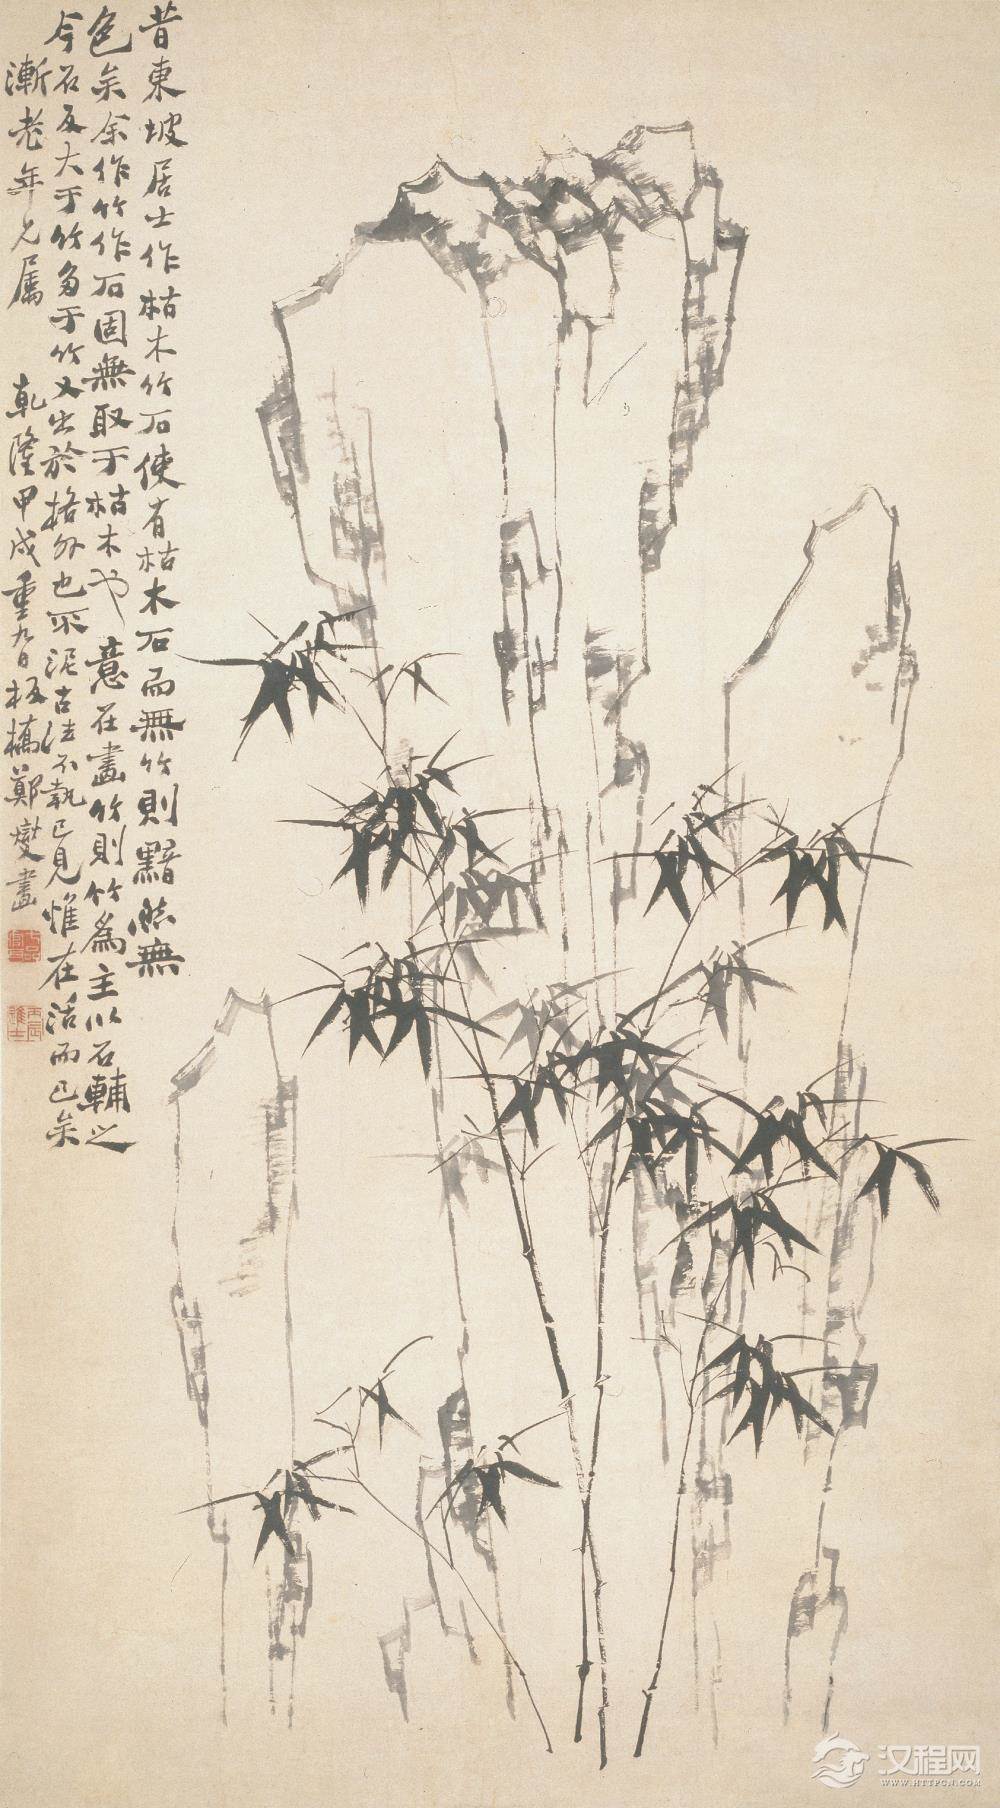 昔東坡居士作枯木竹石使有枯木石而無竹則黯然無
色矣余作竹作石固無取于枯木也意在畫竹則竹為主以石輔之
今石反大于竹多于竹又出於格外也不泥古法不執己見惟在活而已矣
漸老年兄屬 乾隆甲戌重九日板橋鄭燮畫
丙辰進士
汉程网
WWW.HTTPCN.COM